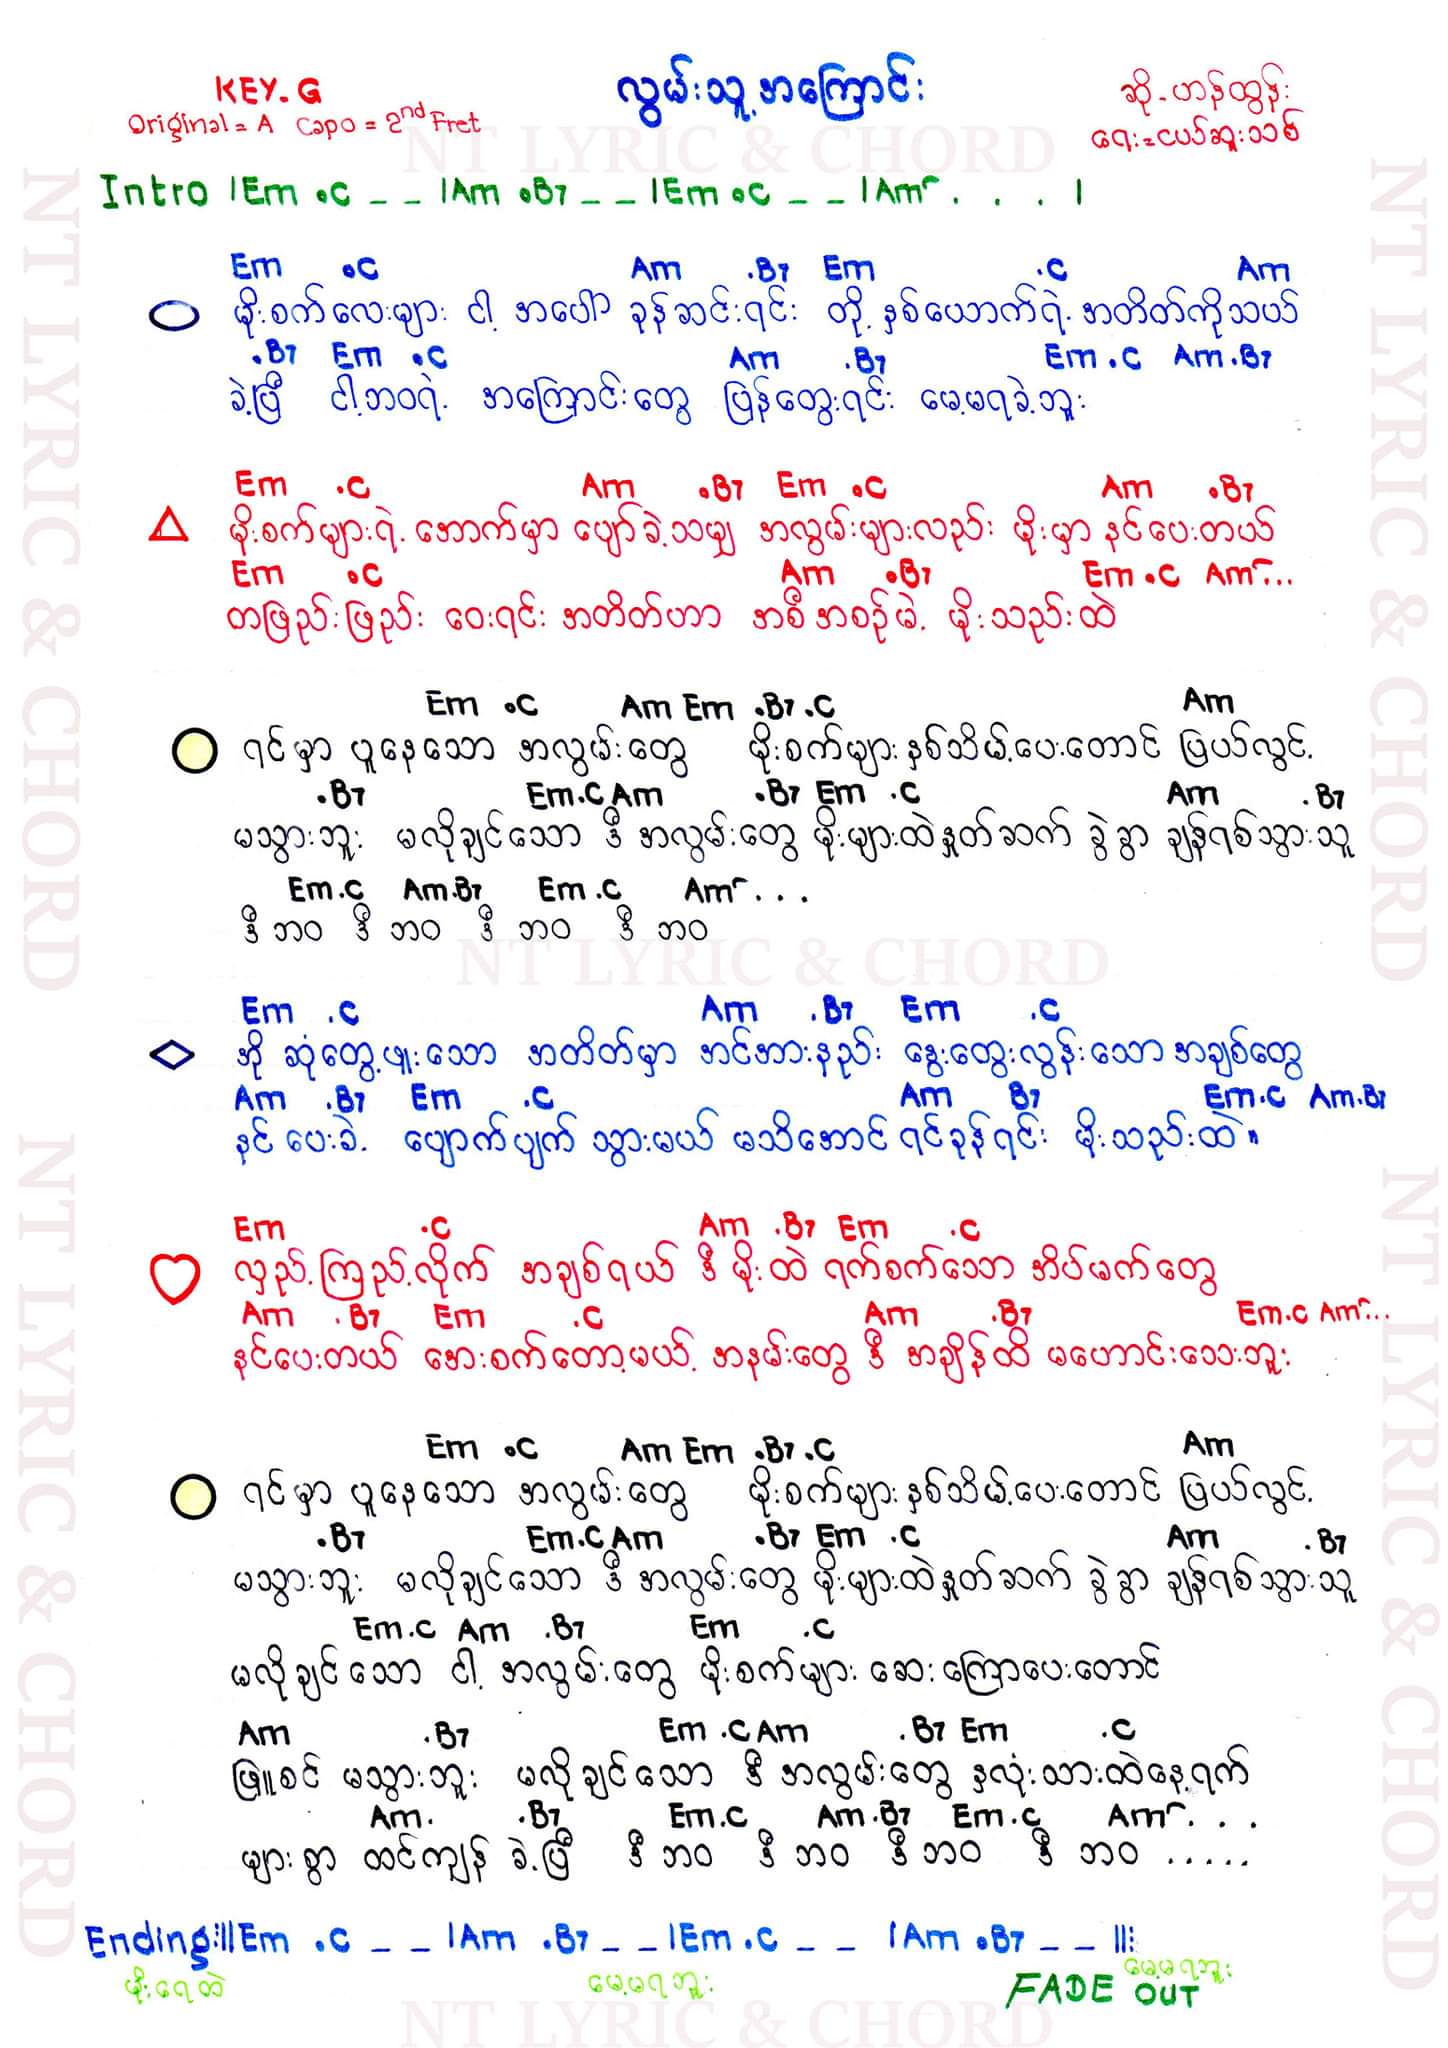 KEY. G
လွမ်းသူ့အကြောင်း
ဆို - ဟန်ထွန်း
Original = A Capo = 2nd Fret
ရေး = ငယ်ဆူးသစ်
NT LYRIC & CHORD
Intro |Em .C _ _ |Am .B7 _ _ |Em .C _ _ |Am . . . |
Em .C Am .B7 Em .C Am
မိုးစက်လေးများ ငါ့ အပေါ် ခုန်ဆင်းရင်း တို့ နှစ်ယောက်ရဲ့ အတိတ်ကိုသယ်
.B7 Em .C Am .B7 Em .C Am .B7
ခဲ့ပြီ ငါ့ဘဝရဲ့ အကြောင်းတွေ ပြန်တွေးရင်း မေ့မရခဲ့ဘူး
Em .C Am .B7 Em .C Am .B7
မိုးစက်များရဲ့ အောက်မှာ ပျော်ခဲ့သမျှ အလွမ်းများလည်း မိုးမှာ နင်ပေးတယ်
Em .C Am .B7 Em .C Am ...
တဖြည်းဖြည်း ဝေးရင်း အတိတ်ဟာ အစီအစဉ်မဲ့ မိုးသည်းထဲ
Em .C Am Em .B7 .C Am
ရင်မှာ ပူနေသော အလွမ်းတွေ မိုးစက်များ နှစ်သိမ့်ပေးတောင် ပြယ်လွင့်
.B7 Em .C Am .B7 Em .C Am .B7
မသွားဘူး မလိုချင်သော ဒီ အလွမ်းတွေ မိုးများထဲနှုတ်ဆက် ခွဲခွာ ချန်ရစ်သွားသူ
Em .C Am .B7 Em .C Am . . .
ဒီ ဘဝ ဒီ ဘဝ ဒီ ဘဝ ဒီ ဘဝ
NT LYRIC & CHORD
Em .C Am .B7 Em .C
အို ဆုံတွေ့ဖူးသော အတိတ်မှာ အင်အားနည်း နွေးထွေးလွန်းသော အချစ်တွေ
Am .B7 Em .C Am B7 Em .C Am .B7
နင် ပေးခဲ့ ပျောက်ပျက် သွားမယ် မသိအောင် ရင်ခုန်ရင်း မိုးသည်းထဲ။
Em .C Am .B7 Em .C
လှည့်ကြည့်လိုက် အချစ်ရယ် ဒီ မိုးထဲ ရက်စက်သော အိပ်မက်တွေ
Am .B7 Em .C Am .B7 Em .C Am ...
နင်ပေးတယ် အေးစက်တော့မယ့် အနမ်းတွေ ဒီ အချိန်ထိ မဟောင်းသေးဘူး
Em .C Am Em .B7 .C Am
ရင်မှာ ပူနေသော အလွမ်းတွေ မိုးစက်များ နှစ်သိမ့်ပေးတောင် ပြယ်လွင့်
.B7 Em .C Am .B7 Em .C Am .B7
မသွားဘူး မလိုချင်သော ဒီ အလွမ်းတွေ မိုးများထဲနှုတ်ဆက် ခွဲခွာ ချန်ရစ်သွားသူ
Em .C Am .B7 Em .C
မလိုချင်သော ငါ့ အလွမ်းတွေ မိုးစက်များ ဆေးကြောပေးတောင်
Am .B7 Em .C Am .B7 Em .C
ဖြူစင် မသွားဘူး မလိုချင်သော ဒီ အလွမ်းတွေ နှလုံးသားထဲနေ့ရက်
Am. .B7 Em .C Am .B7 Em .C Am . . .
များစွာ ထင်ကျန် ခဲ့ပြီ ဒီ ဘဝ ဒီ ဘဝ ဒီ ဘဝ ဒီ ဘဝ .....
Ending:||Em .C _ _ |Am .B7 _ _ |Em .C _ _ |Am .B7 _ _ ||:
မိုးရေထဲ မေ့မရဘူး မေ့မရဘူး
FADE OUT
NT LYRIC & CHORD
NT LYRIC & CHORD
NT LYRIC & CHORD
NT LYRIC & CHORD
NT LYRIC & CHORD